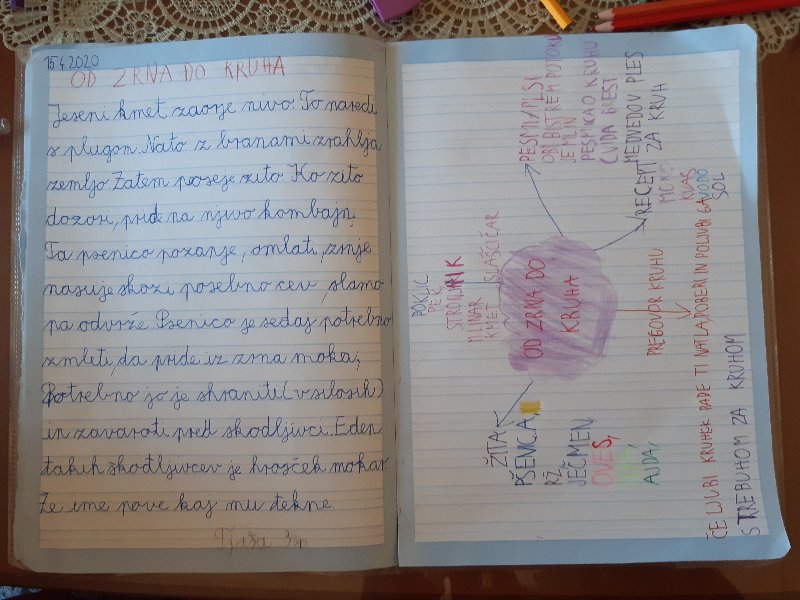 15.4.2020
OD ZRNA DO KRUHA
Jeseni kmet zaorje nivo. To naredi
s plugom. Nato z branami zrahlja
zemljo. Zatem poseje zito. Ko zito
dozori, pride na njivo kombajn.
Ta psenico pozanje, omlati, zrnje
nasuje skozi posebno cev, slamo
pa odvrže. Psenico je sedaj potrebno
zmleti, da pride iz zrna moka.
Potrebno jo je shraniti (v silosih)
in zavaroti pred skodljivci. Eden
takih škodljivcev je hrošček mokar.
Že ime pove kaj mu tekne.
Tjaša 3.r
OD ZRNA DO
KRUHA
PESMI/PLSI
OB BISTREM POTOKU
JE MLIN
PESMICA O KRUHU
ČUDA BREST
MEDVEDOV PLES
RECEPT ZA KRUH
MOKO
KVAS
VODO
SOL
PREGOVOR KRUHU
ČE LJUBI KRUHEK PADE TI NA TLA POBERI IN POLJUBI GA
S TREBUHOM ZA KRUHOM
ŽITA
PŠENICA,
RŽ,
JEČMEN,
OVES,
AJDA,
POKLIC
PEK,
MLINAR
KMET
SLAŠČIČAR